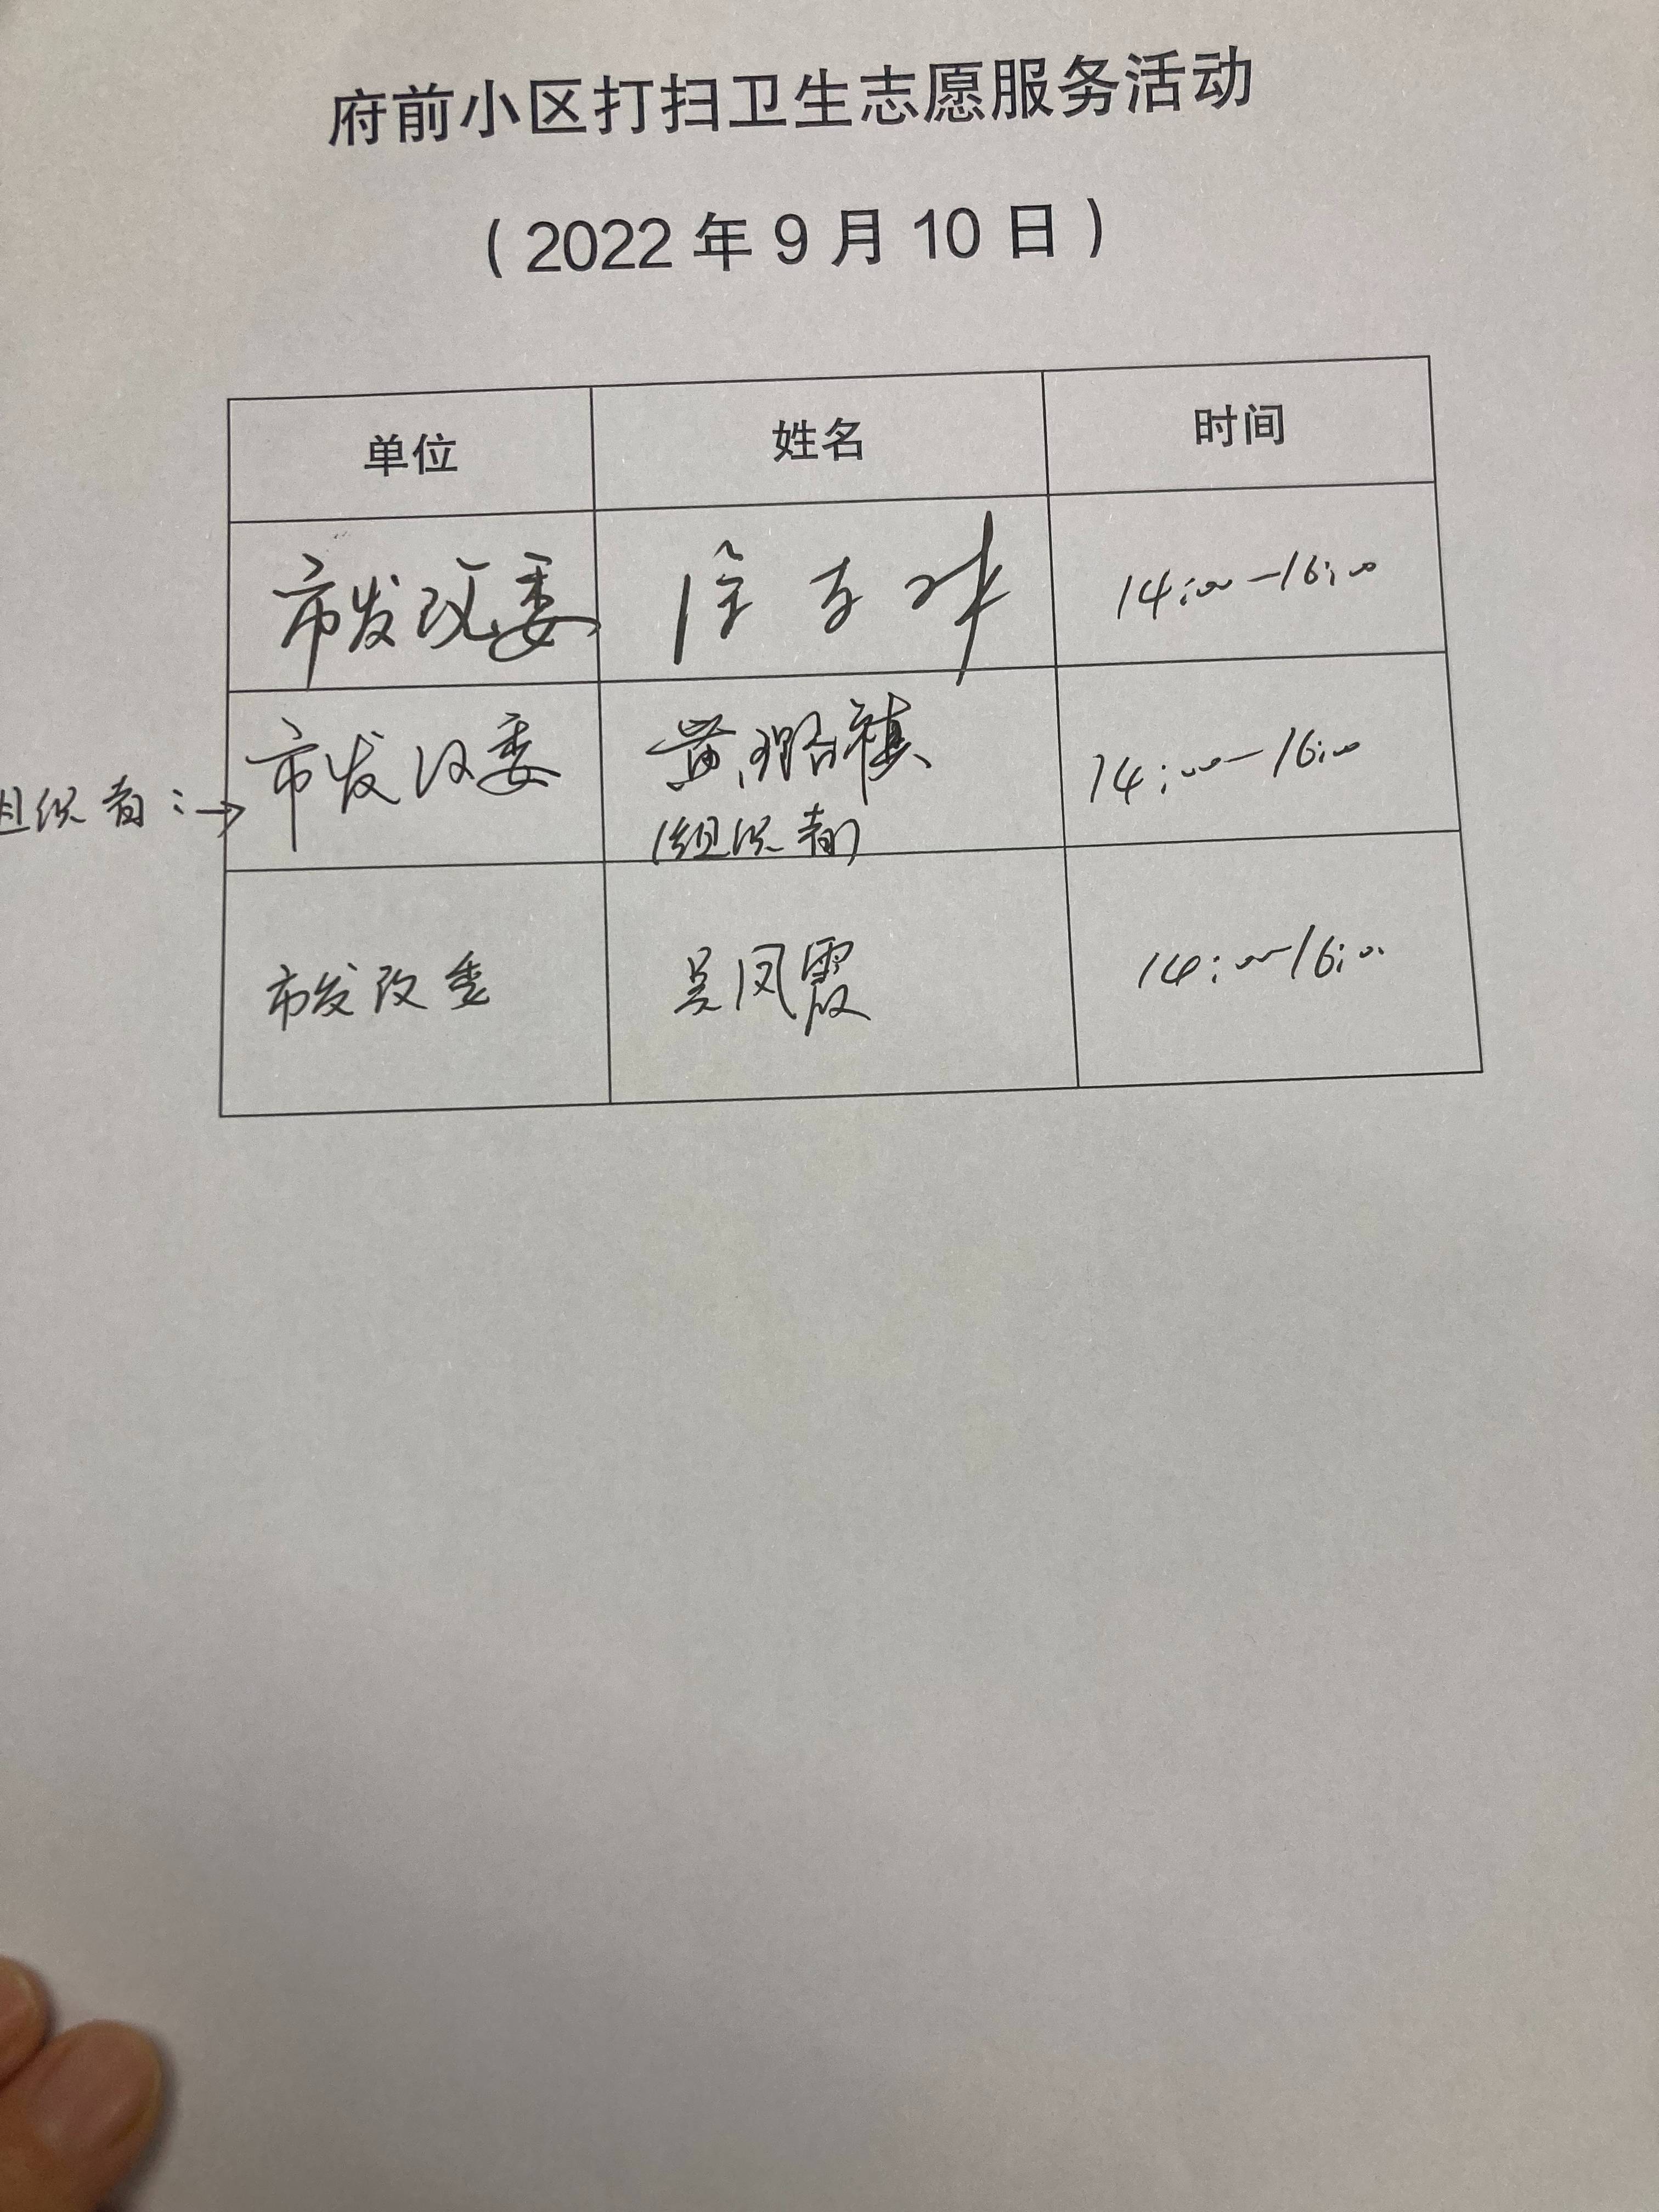 府前小区打扫卫生志愿服务活动
（2022年9月10日）
单位 姓名 时间
市发改委 14:00-16:00
市发改委 黄璐禛 14:00-16:00
组织者：→
(组织者)
市发改委 吴凤霞 14:00-16:00